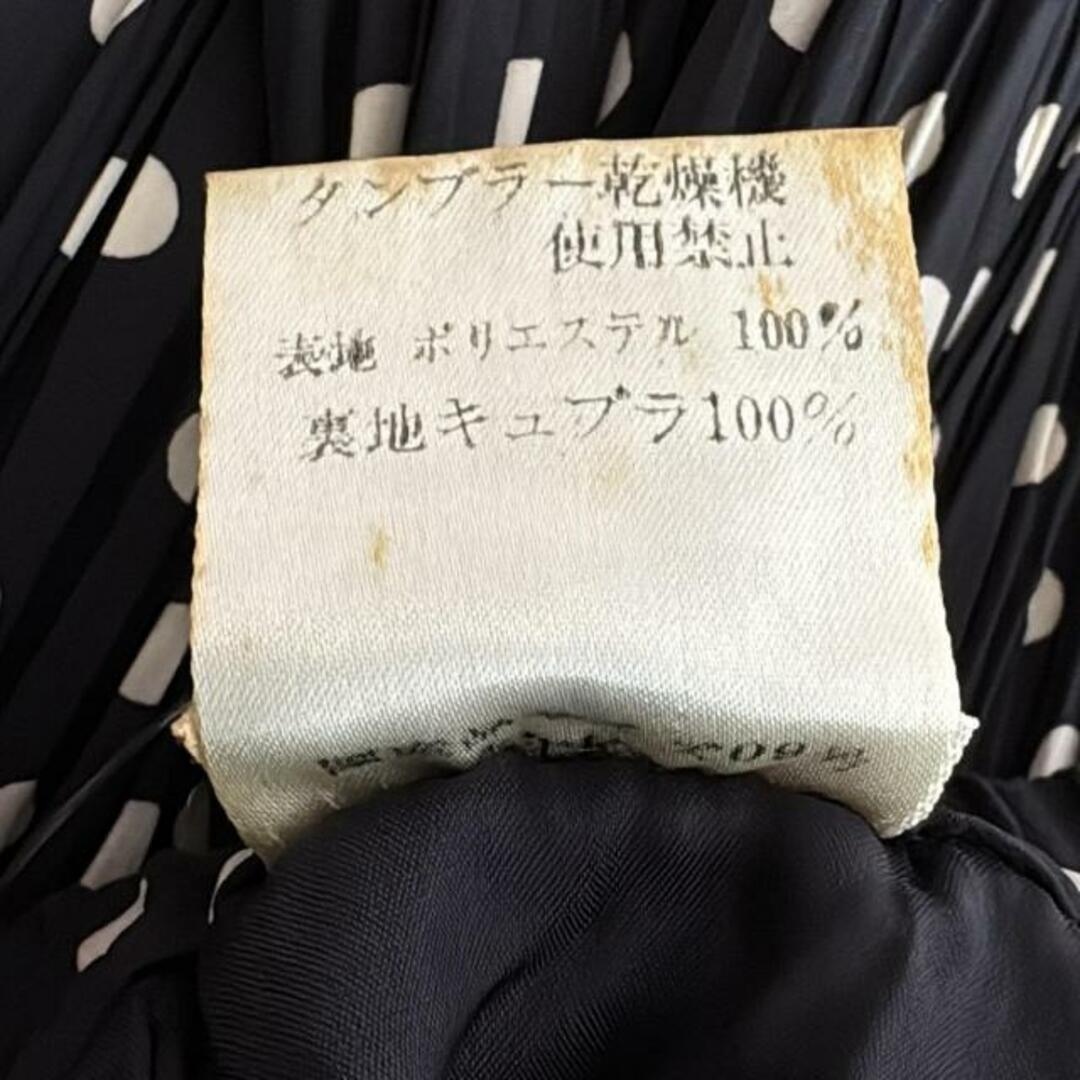 タンブラー乾燥機
使用禁止
表地 ポリエステル 100%
裏地キュプラ100%